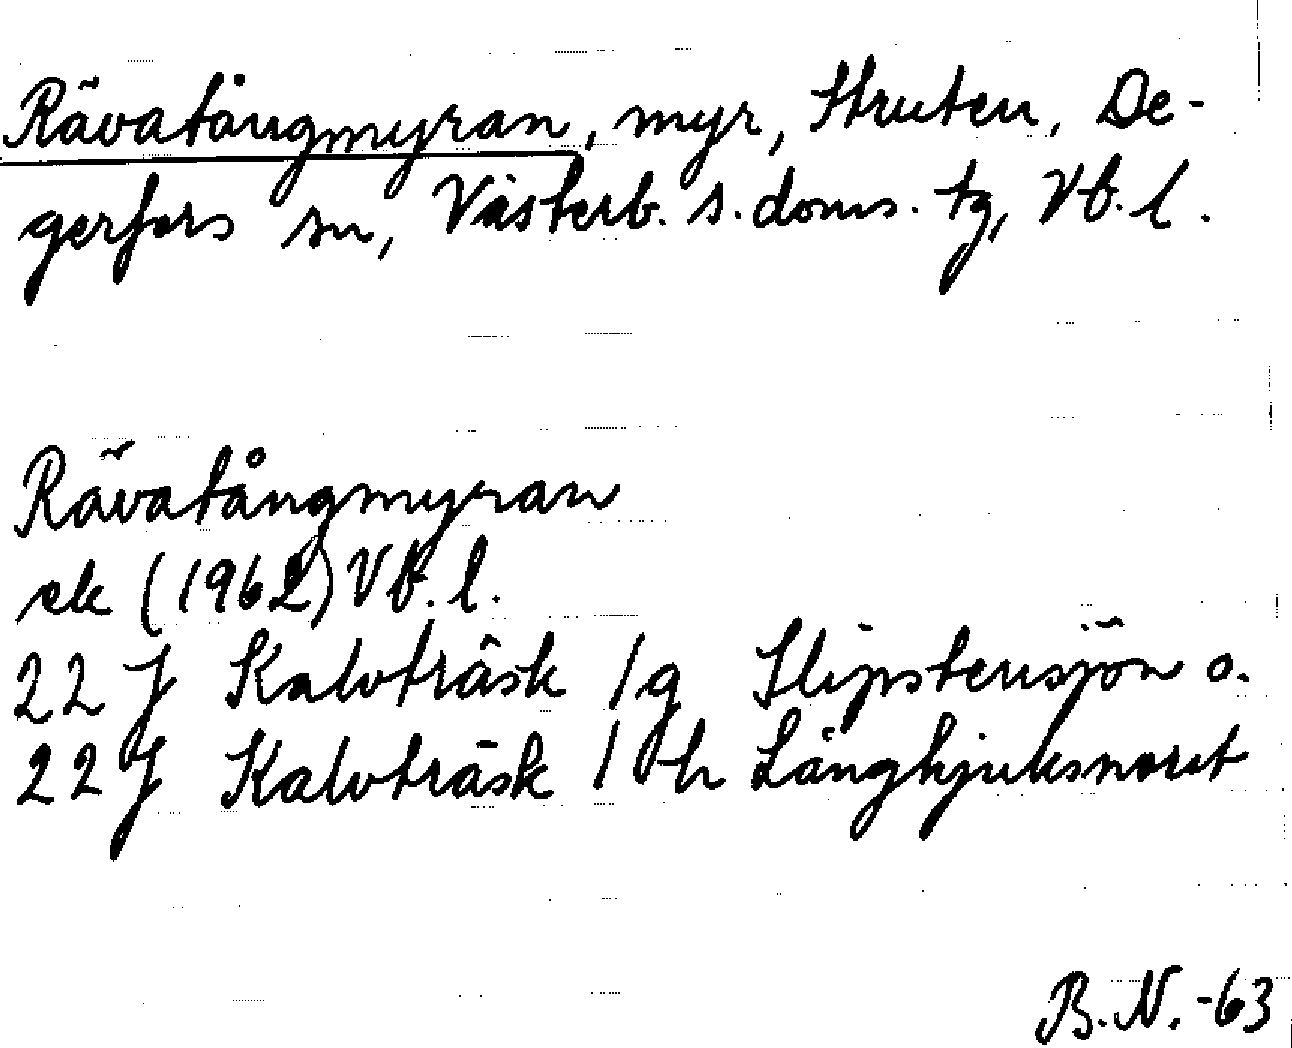 Rävatångmyran, myr, Struten, De-
gerfors sn, Västerb. s. doms. tg, Vb. l.
Rävatångmyran
ek (1962) Vb. l.
22 J Kalvträsk 1 g Slipstensjön o.
22 J Kalvträsk 1 h Långhjuksnoret
B.N. -63